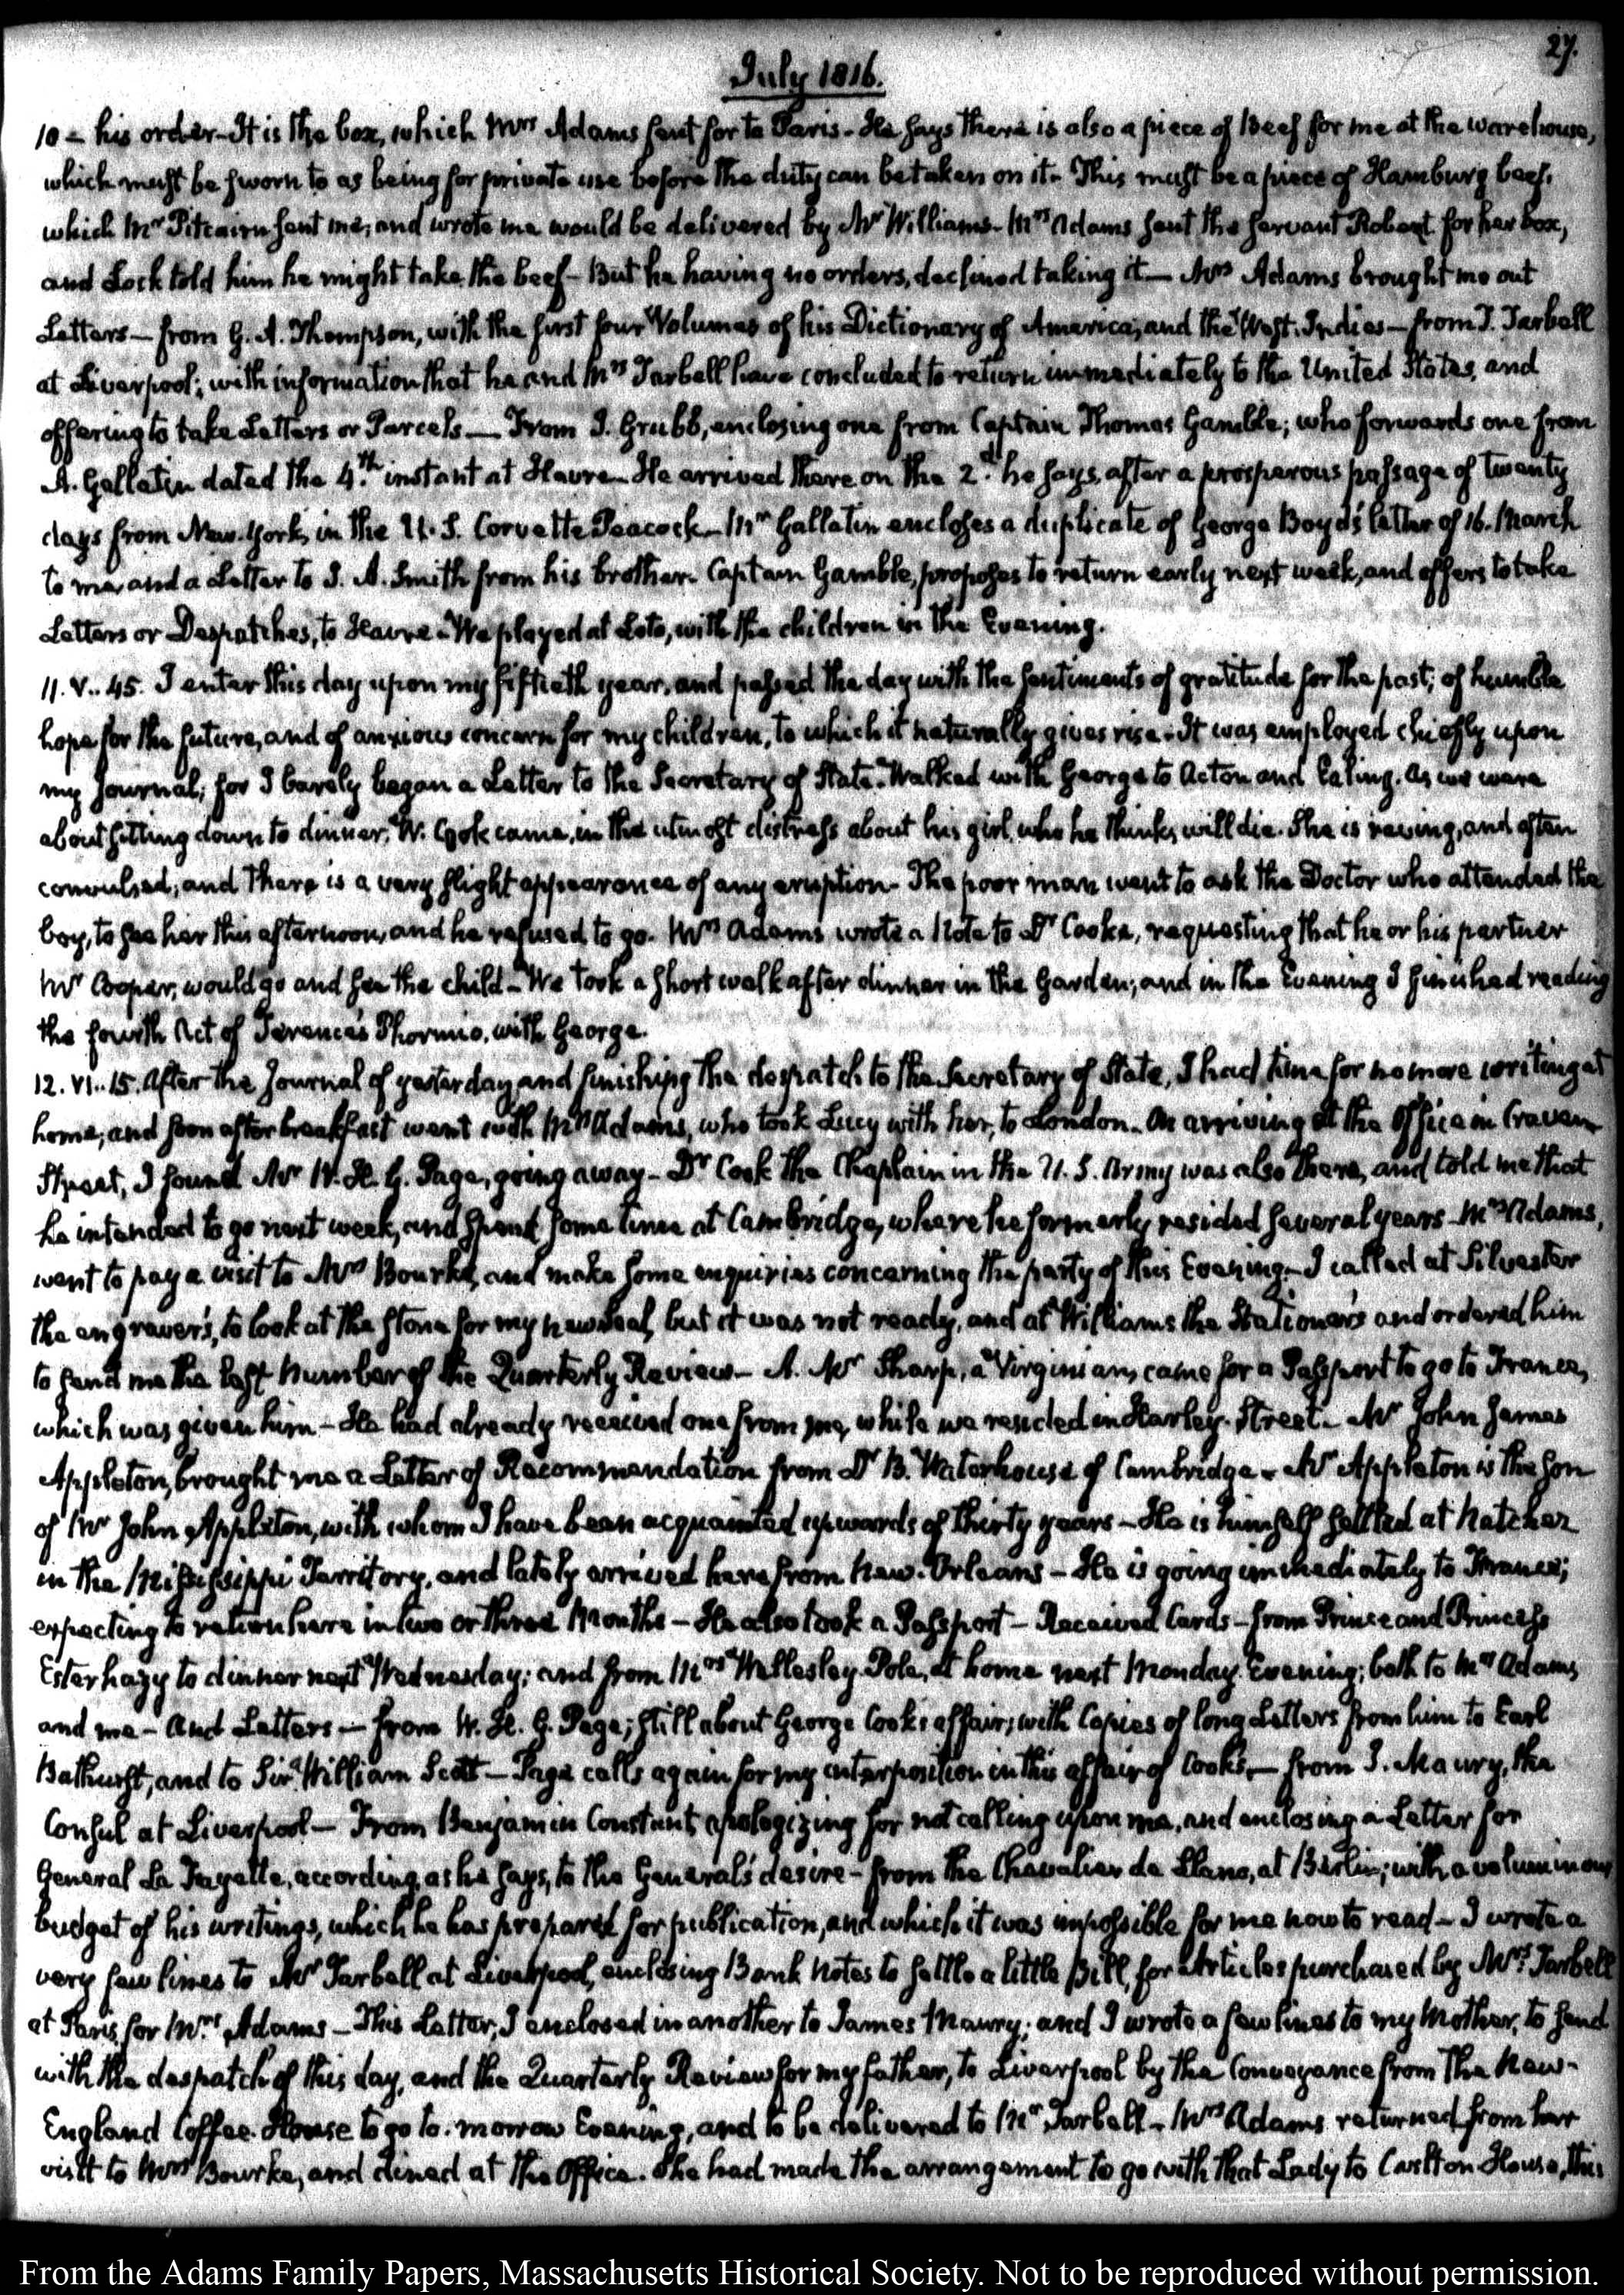 27.
July 1816.
10 – his order – It is the box, which Mrs Adams sent for to Paris – He says there is also a piece of Beef for me at the warehouse,
which must be sworn to as being for private use before the duty can be taken on it – This must be a piece of Hamburg beef,
which Mr Pitcairn sent me, and wrote me would be delivered by Mr Williams – Mrs Adams sent the servant Robert for her box,
and Lock told him he might take the beef – But he having no orders, declined taking it – Mrs Adams brought me out
Letters – from G. A. Thompson, with the first four Volumes of his Dictionary of America, and the West. Indies – from J. Tarbell
at Liverpool; with information that he and Mrs Tarbell have concluded to return immediately to the United States, and
offering to take Letters or Parcels – From J. Grubb, enclosing one from Captain Thomas Gamble; who forwards one from
A. Gallatin dated the 4.th instant at Havre – He arrived there on the 2.d he says, after a prosperous passage of twenty
days from New-York, in the U. S. Corvette Peacock – Mr Gallatin encloses a duplicate of George Boyd's letter of 16. March
to me, and a Letter to J. A. Smith from his brother. Captain Gamble, proposes to return early next week, and offers to take
Letters or Despatches, to Havre – We played at Loto, with the children in the Evening.
11. V.. 45. I enter this day upon my fiftieth year, and passed the day with the sentiments of gratitude for the past; of humble
hope for the future, and of anxious concern for my children, to which it naturally gives rise – It was employed chiefly upon
my Journal; for I barely began a Letter to the Secretary of State. Walked with George to Acton and Ealing. As we were
about sitting down to dinner, W. Cook came, in the utmost distress about his girl, who he thinks will die. She is raving, and often
convulsed, and there is a very slight appearance of any eruption – The poor man went to ask the Doctor who attended the
boy, to see her this afternoon, and he refused to go. Mrs Adams wrote a Note to Dr Cooke, requesting that he or his partner
Mr Cooper, would go and see the child – We took a short walk after dinner in the Garden; and in the Evening I finished reading
the fourth Act of Terence's Phormio, with George.
12. VI.. 15. After the Journal of yesterday, and finishing the despatch to the Secretary of State, I had time for no more writing at
home; and soon after breakfast went with Mrs Adams, who took Lucy with her, to London. On arriving at the Office in Craven
Street, I found Mr W. H. G. Page, going away – Dr Cook the Chaplain in the U. S. Army was also there, and told me that
he intended to go next week, and spend some time at Cambridge, where he formerly resided several years – Mrs Adams,
went to pay a visit to Mrs Bourke, and make some enquiries concerning the party of this Evening – I called at Silvester
the engraver's, to look at the stone for my new Seal, but it was not ready, and at Williams the Stationer's and ordered him
to send me the last Number of the Quarterly Review – A. Mr Sharp, a Virginian, came for a Passport to go to France,
which was given him – He had already received one from me, while we resided in Harley-Street – Mr John James
Appleton, brought me a Letter of Recommendation from Dr B. Waterhouse of Cambridge – Mr Appleton is the Son
of Mr John Appleton, with whom I have been acquainted upwards of thirty years – He is himself settled at Natchez
in the Mississippi Territory, and lately arrived here from New-Orleans – He is going immediately to France;
expecting to return here in two or three Months – He also took a Passport – Received Cards – from Prince and Princess
Esterhazy to dinner next Wednesday; and from Mrs Wellesley Pole, at home next Monday Evening; both to Mrs Adams
and me – And Letters – from W. H. G. Page; still about George Cook's affair; with Copies of long Letters from him to Earl
Bathurst, and to Sir William Scott – Page calls again for my interposition in this affair of Cook's, – from J. Maury, the
Consul at Liverpool – From Benjamin Constant apologizing for not calling upon me, and enclosing a Letter for
General La Fayette, according, as he says, to the General's desire – from the Chevalier de Llano, at Berlin; with a voluminous
budget of his writings, which he has prepared for publication, and which it was impossible for me now to read – I wrote a
very few lines to Mr Tarbell at Liverpool, enclosing Bank Notes to settle a little Bill, for Articles purchased by Mrs Tarbell
at Paris for Mrs Adams – This Letter, I enclosed in another to James Maury; and I wrote a few lines to my Mother, to send
with the despatch of this day, and the Quarterly Review for my father, to Liverpool by the Conveyance from the New-
England Coffee-House to go to-morrow Evening, and to be delivered to Mr Tarbell – Mrs Adams returned from her
visit to Mrs Bourke, and dined at the Office. She had made the arrangement to go with that Lady to Carlton House, this
From the Adams Family Papers, Massachusetts Historical Society. Not to be reproduced without permission.